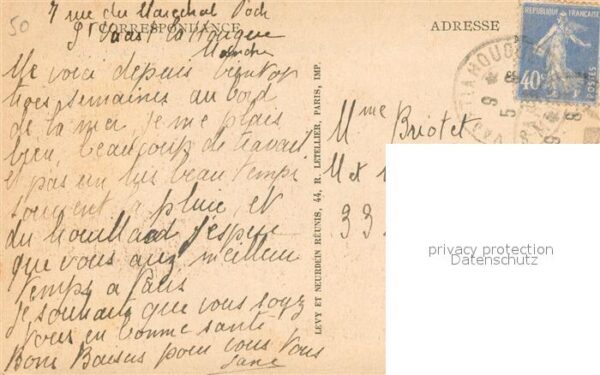 50
7 rue du Marechal Foch
CORRESPONDANCE
St Vaast la Hougue
Manche
ADRESSE
Me voici depuis bientot
trois semaines au bord
de la mer je me plais
bien, beaucoup de travail
et pas un tres beau temps
souvent la pluie et
du brouillard j'espere
que vous avez meilleur
temps a Paris
je souhaite que vous soyez
tous en bonne santé
Bons Baisers pour vous tous
Jane
LEVY ET NEURDEIN RÉUNIS, 44, R. LETELLIER, PARIS, IMP.
40c
LA HOUGUE
9
5
Mme Briotet
M et
33
privacy protection
Datenschutz